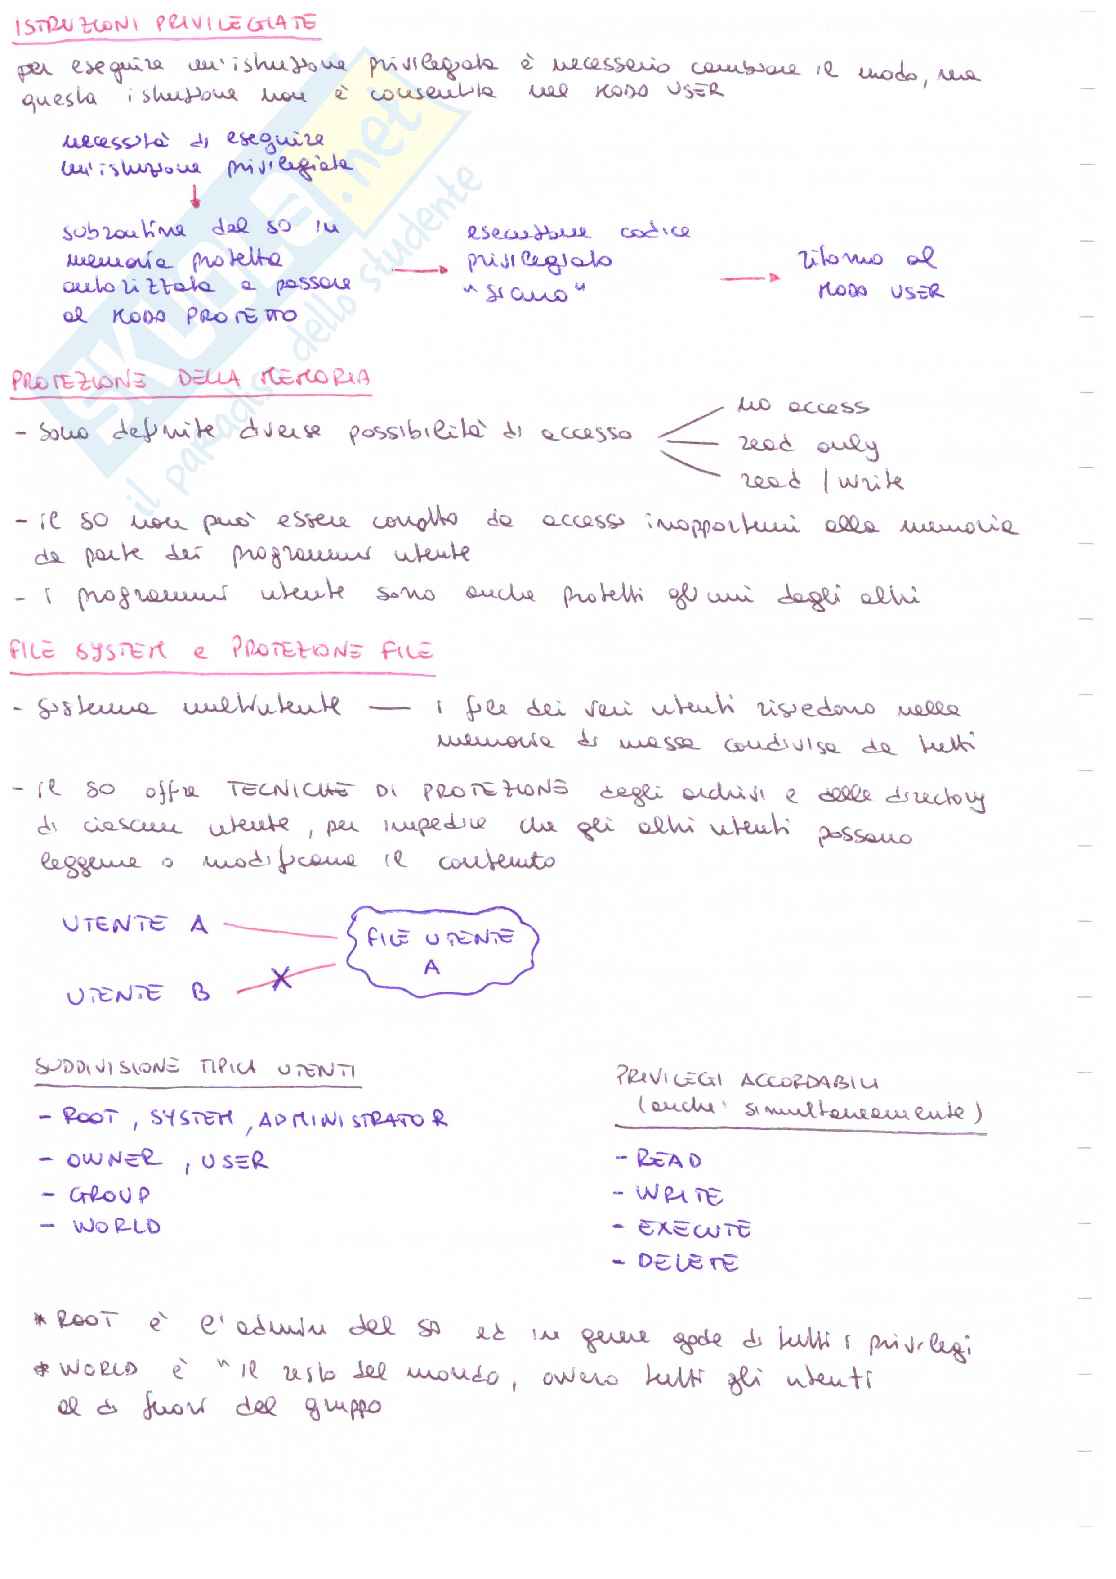 ISTRUZIONI PRIVILEGIATE
per eseguire un'istruzione privilegiata è necessario cambiare il modo, ma
questa istruzione non è consentita nel MODO USER
necessità di eseguire
un'istruzione privilegiata
subroutine del SO in
memoria protetta
autorizzata a passare
al MODO PROTETTO
esecuzione codice
privilegiato
"sicuro"
ritorno al
MODO USER
PROTEZIONE DELLA MEMORIA
- sono definite diverse possibilità di accesso
no access
read only
read / write
- il SO non può essere corrotto da accessi inopportuni alla memoria
da parte dei programmi utente
- i programmi utente sono anche protetti gli uni dagli altri
FILE SYSTEM e PROTEZIONE FILE
- sistema multiutente — i file dei vari utenti risiedono nella
memoria di massa condivisa da tutti
- il SO offre TECNICHE DI PROTEZIONE degli archivi e delle directory
di ciascun utente, per impedire che gli altri utenti possano
leggerne o modificarne il contenuto
UTENTE A
FILE UTENTE
A
UTENTE B
SUDDIVISIONE TIPICA UTENTI
- ROOT, SYSTEM, ADMINISTRATOR
- OWNER, USER
- GROUP
- WORLD
PRIVILEGI ACCORDABILI
(anche simultaneamente)
- READ
- WRITE
- EXECUTE
- DELETE
* ROOT è l'admin del SO ed in genere gode di tutti i privilegi
* WORLD è "il resto del mondo, ovvero tutti gli utenti
al di fuori del gruppo
SKUOLA.net
il paradiso dello studente